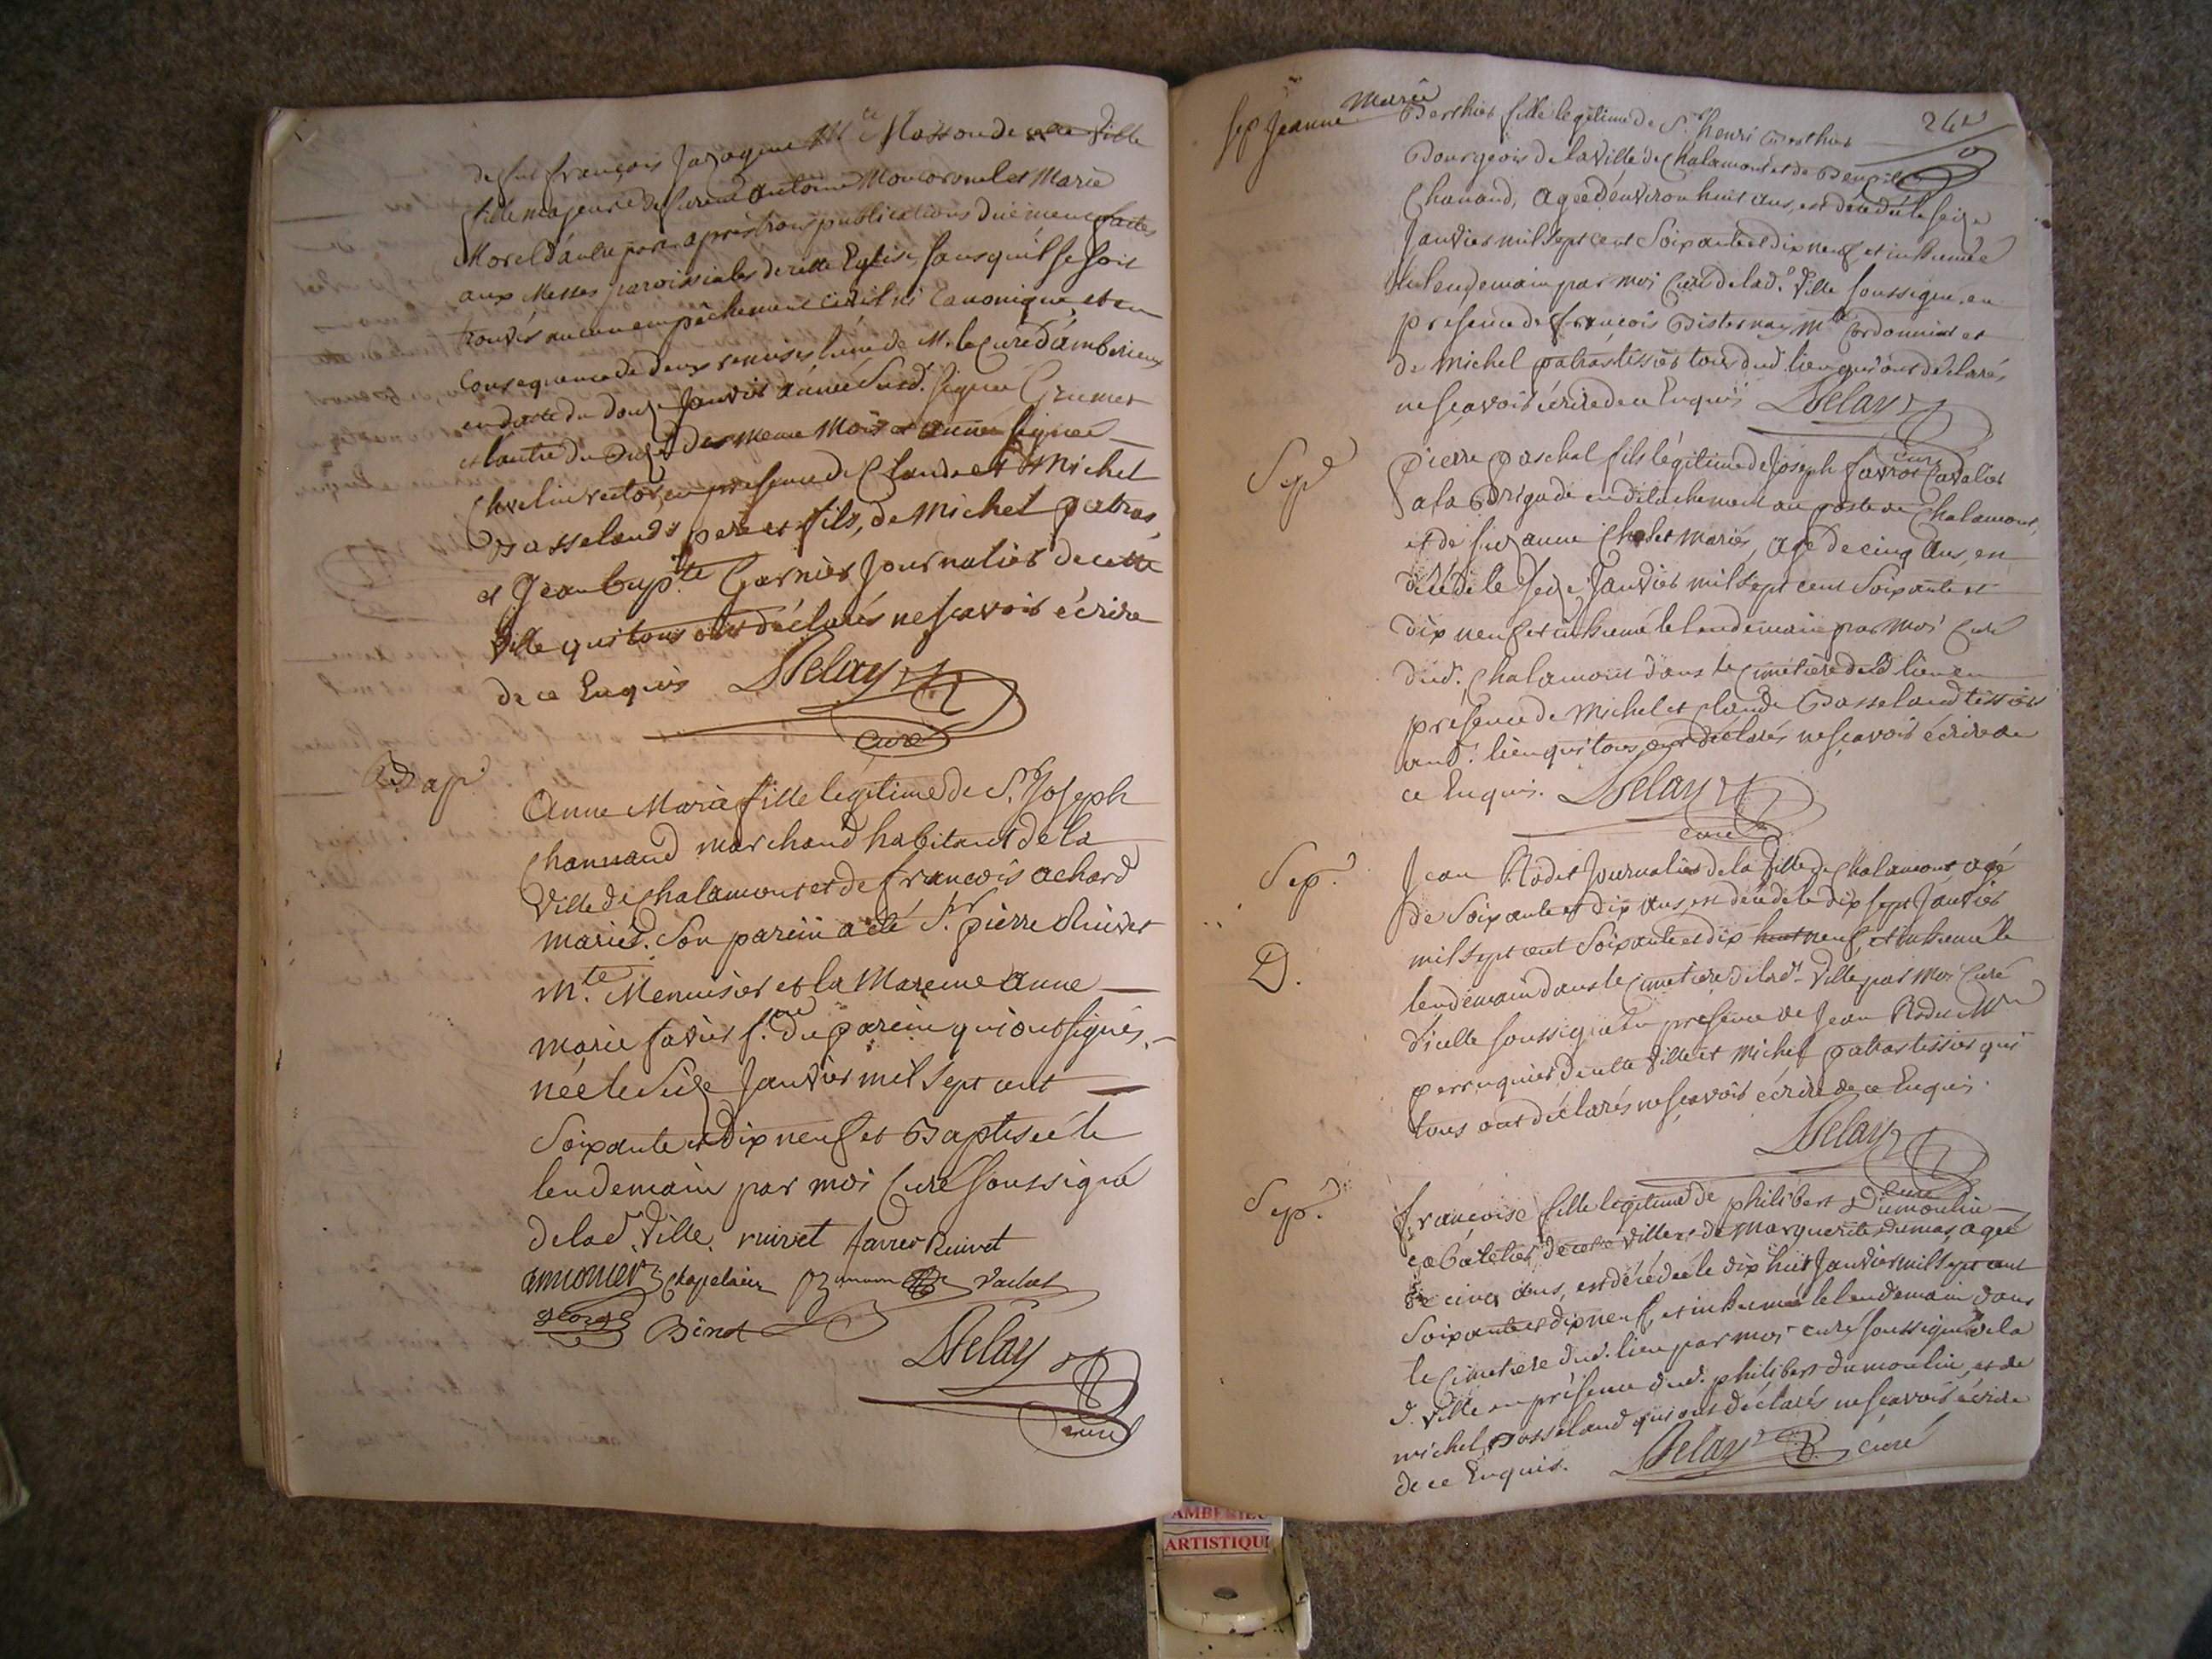 de feu françois Jazagme Me Masson de cette Ville
fille majeure de furent antoine Moncoronel et Marie
Morel d'autre part. après trois publications duement faites
aux Messes paroissiales de cette Eglise, sans qu'il se soit
trouvés aucun empêchement civil ni Canonique, et en
Consequence de deux remises l'une de M. le Curé d'amberieux
en datte du douze Janvier année susd. signée Grumet
et l'autre du des meme Mois et année signée
recteur, en presence de Claude et Michel
Basselands pere et fils, de Michel patras,
et Jean bapte. Garnier Journalier de cette
Ville qui tous ont déclarés ne scavoir écrire
de ce Enquis Delay
curé
Bap.
Anne Marie fille légitime de Sr. Joseph
Channand marchand habitant de la
Ville de Chalamont et de francois achard
mariés. Son parein a été Sr. pierre Ruivet
Mte. Menuisier et la Mareine anne
marie favier f.me du parein qui ont signés.
née le Seize Janvier mil sept cent
Soixante et Dix neuf et Baptisée le
lendemain par moi Curé soussigné
de lad. Ville. ruivet favier Ruivet
Chapelain vachet
george Binet
Delay
curé
242
Sep. Jeanne Marie Berthier fille légitime de Sr. henri Berthier
Bourgeois de la Ville de Chalamont et de
Chanand, agée d'environ huit ans, est décédée le seize
Janvier mil sept cent Soixante et dix neuf et inhumée
le lendemain par moi Curé de lad. Ville soussigné. en
presence de françois Bisternay Mtre Cordonnier et
de michel patras tissier tous dud. lieu qui ont déclarés
ne scavoir écrire de ce Enquis Delay
curé
Sep
pierre paschal fils légitime de Joseph favrot Cavalier
a la Brigade en détachement au poste de Chalamont,
et de suzanne Cholet mariés, agé de cinq Ans, en
décédé le seize Janvier mil sept cent Soixante et
Dix neuf et inhumé le lendemain par moi Curé
dud. Chalamont dans le Cimetière dud lieu en
presence de Michel et claude Basseland tissiers
aud. lieu qui tous ont déclarés ne scavoir écrire de
ce Enquis. Delay
curé
Sep.
Jean Rodet Journalier de la Ville de Chalamont, agé
de Soixante et dix ans, en décédé le dix sept Janvier
mil sept cent Soixante et dix huit neuf, et inhumé le
D.
lendemain dans le Cimetière de lad. Ville par moi Curé
d'icelle soussigné en presence de Jean Rodet Mtre
perruquier de cette Ville et Michel patras tissier qui
tous ont déclarés ne scavoir écrire de ce Enquis.
Delay
curé
Sep.
françoise fille légitime de philibert Dumoulin
cabâtier de cette Ville et de Marguerite dumas, agée
de cinq ans, est décédée le dix huit Janvier mil sept cent
Soixante et dix neuf, et inhumée le lendemain dans
le Cimetiere dud. lieu par moi curé soussigné de la
d. Ville en présence dud. philibert dumoulin, et de
michel Basseland qui ont déclarés ne scavoir écrire
de ce Enquis. Delay curé
AMBERIEU
ARTISTIQU